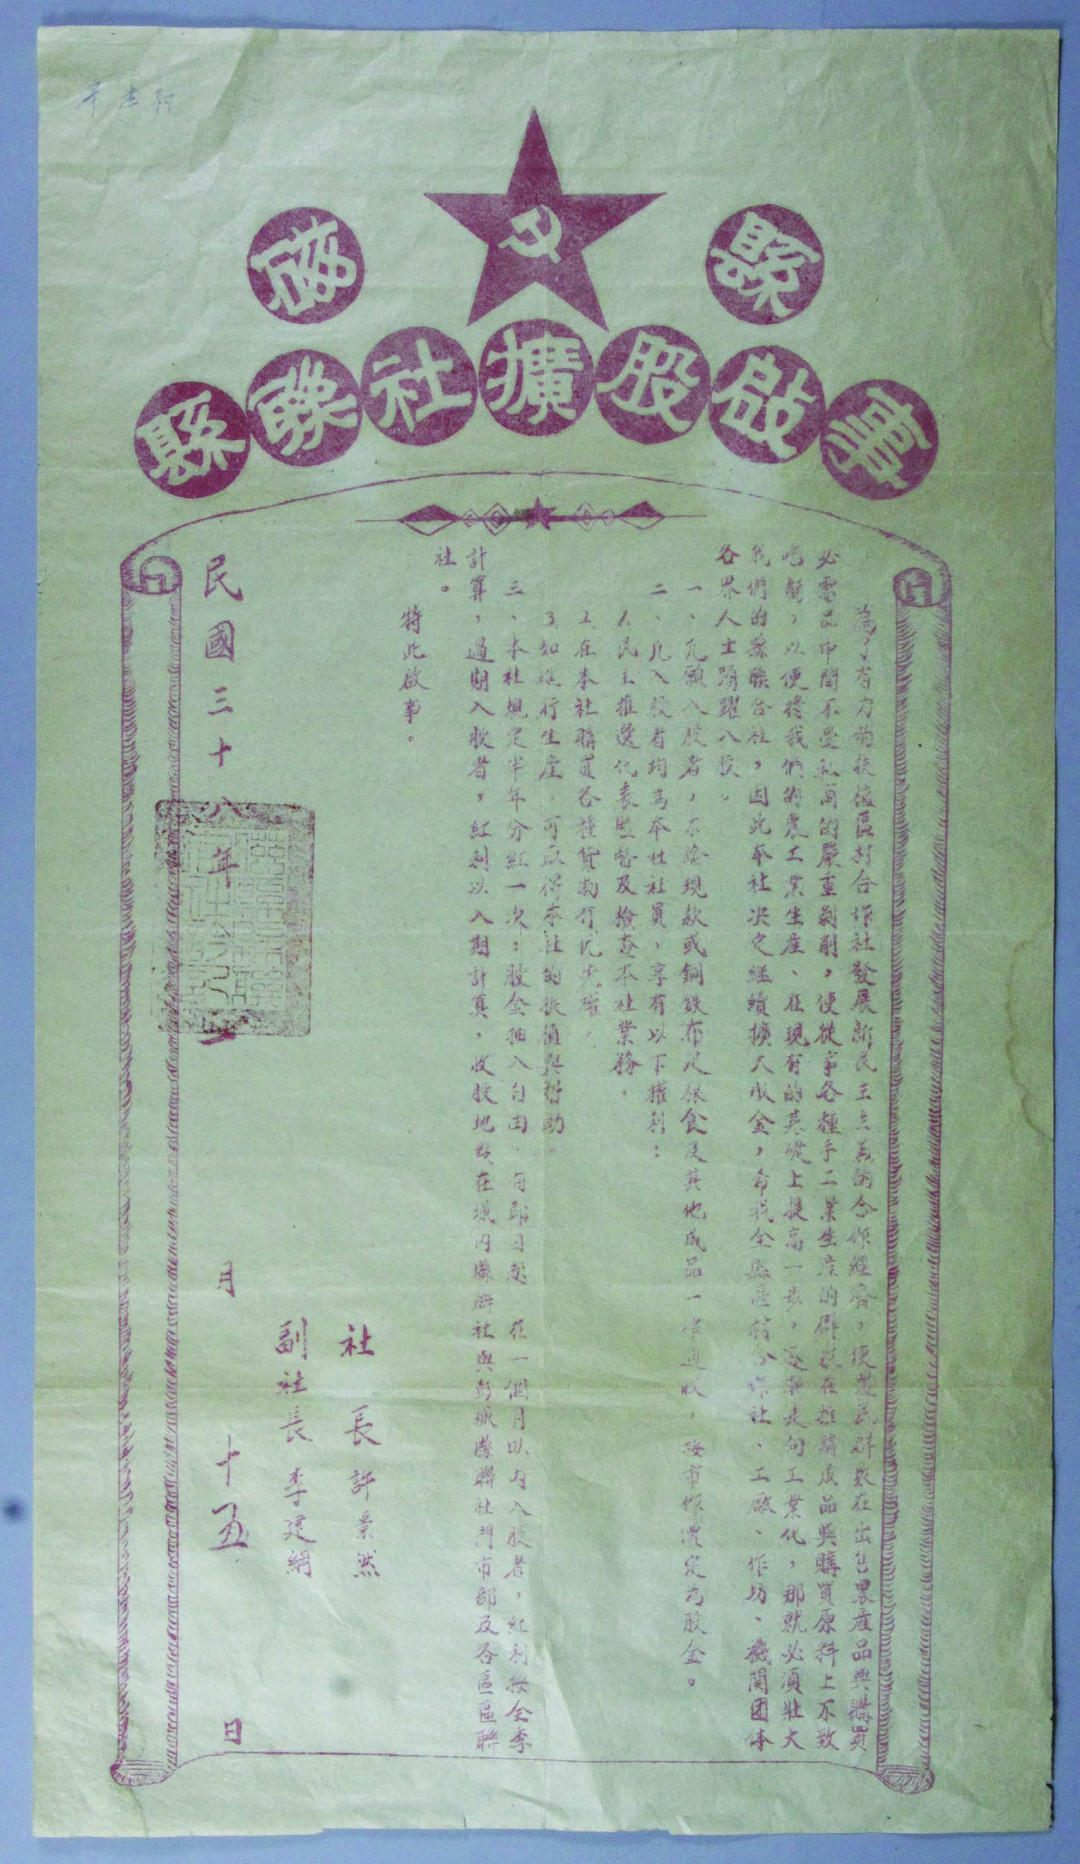 磁縣
縣聯社擴股啟事
為了有力的扶植區村合作社發展新民主主義的合作經濟，使農民群眾在出售農產品與購買
必需品中間不受私商的嚴重剝削，使從事各種手工業生產的群眾在推銷成品與購買原料上不致
吃虧，以便將我們的農工業生產、在現有的基礎上提高一步，逐漸走向工業化，那就必須壯大
我們的縣聯合社，因此本社決定繼續擴大股金，希我全縣區村合作社、工廠、作坊、機關团体
各界人士踴躍入股。
一、凡願入股者，不論現款或銅鉄布尺粮食及其他成品一律通收，按市作價定為股金。
二、凡入股者均為本社社員，享有以下權利：
1.民主推選代表監督及檢查本社業務。
2.在本社購買各種貨物有优先權。
3.如進行生產，可取得本社的扶植與幫助。
三、本社規定半年分紅一次；股金抽入自由，自即日起 在一個月以內入股者，紅利按全季
計算，過期入股者，紅利以入期計算，收股地點在城內縣聯社與彭城縣聯社門市部及各區區聯
社。
特此啟事。
社 長 許景然
副社長 李建綱
民國三十八年 月 十五 日